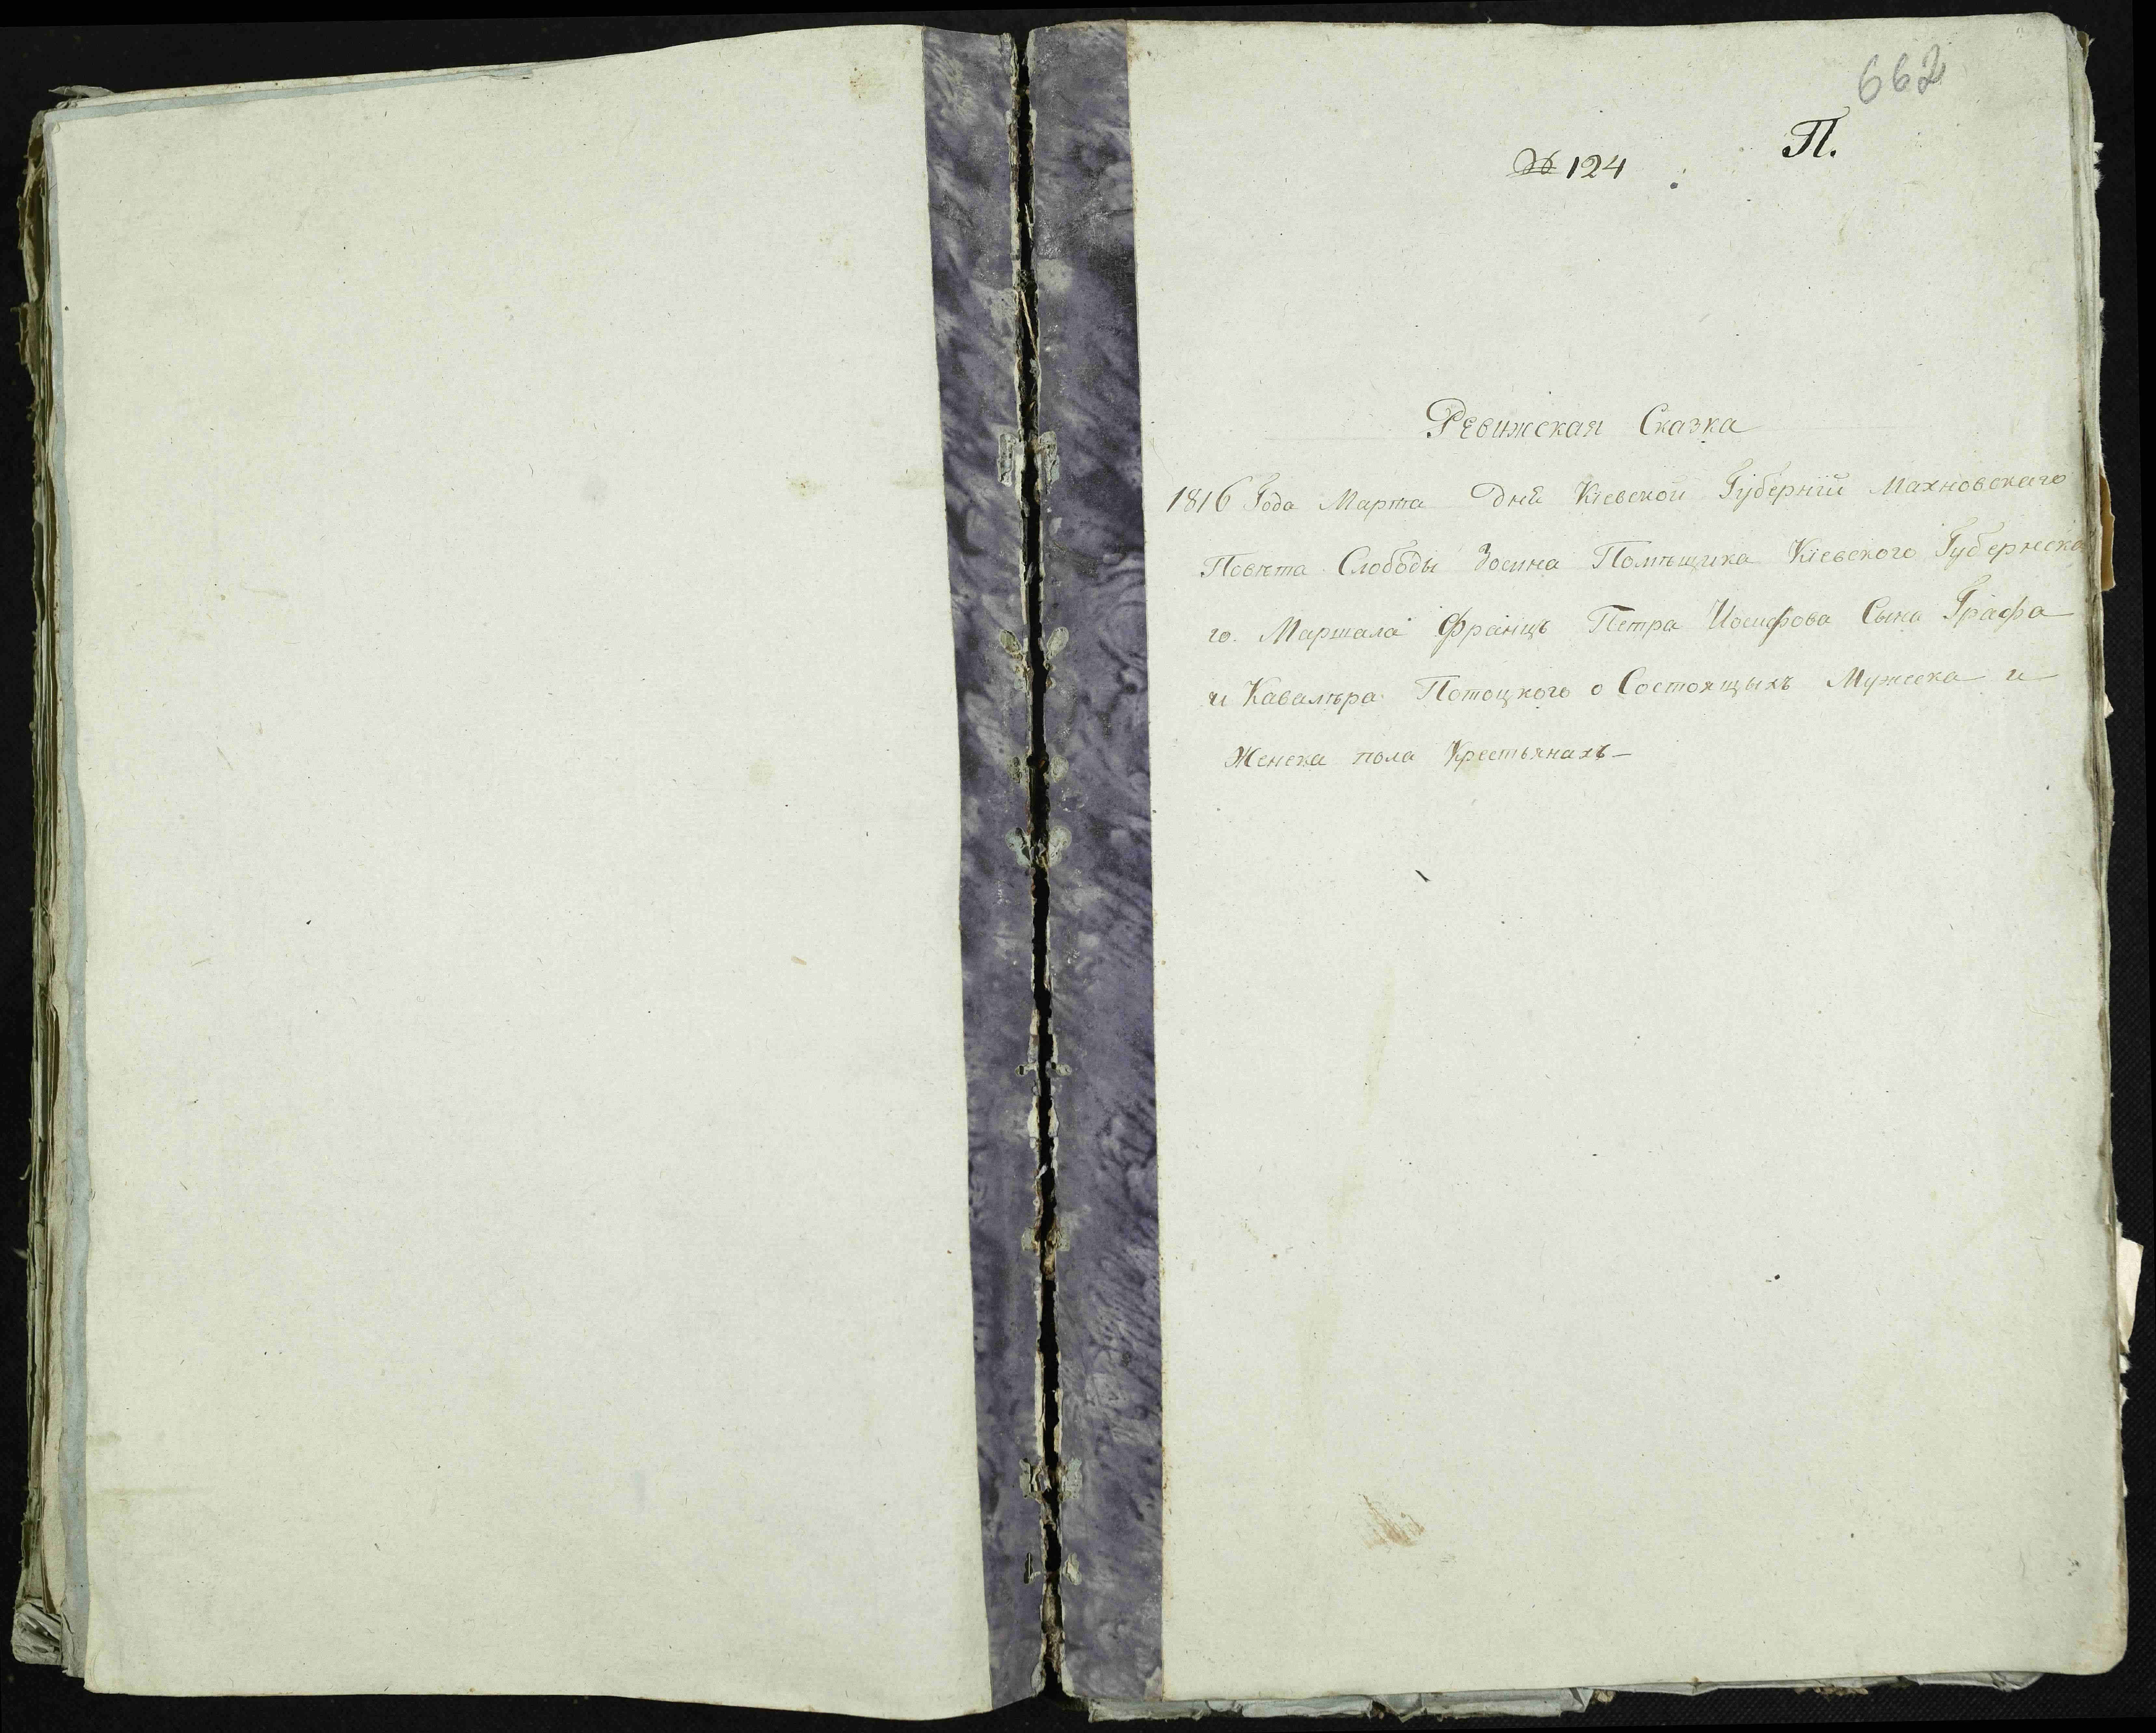 662
П.
№ 124
Ревижская Сказка
1816 Года Марта дня Кіевской Губерніи Махновскаго
Повѣта Слободы Зосина Помѣщика Кіевского Губернска
го. Маршала Францъ Петра Иосифова Сына Графа
и Кавалѣра Потоцкого о Состоящыхъ Мужеска и
Женска пола Крестьянахъ